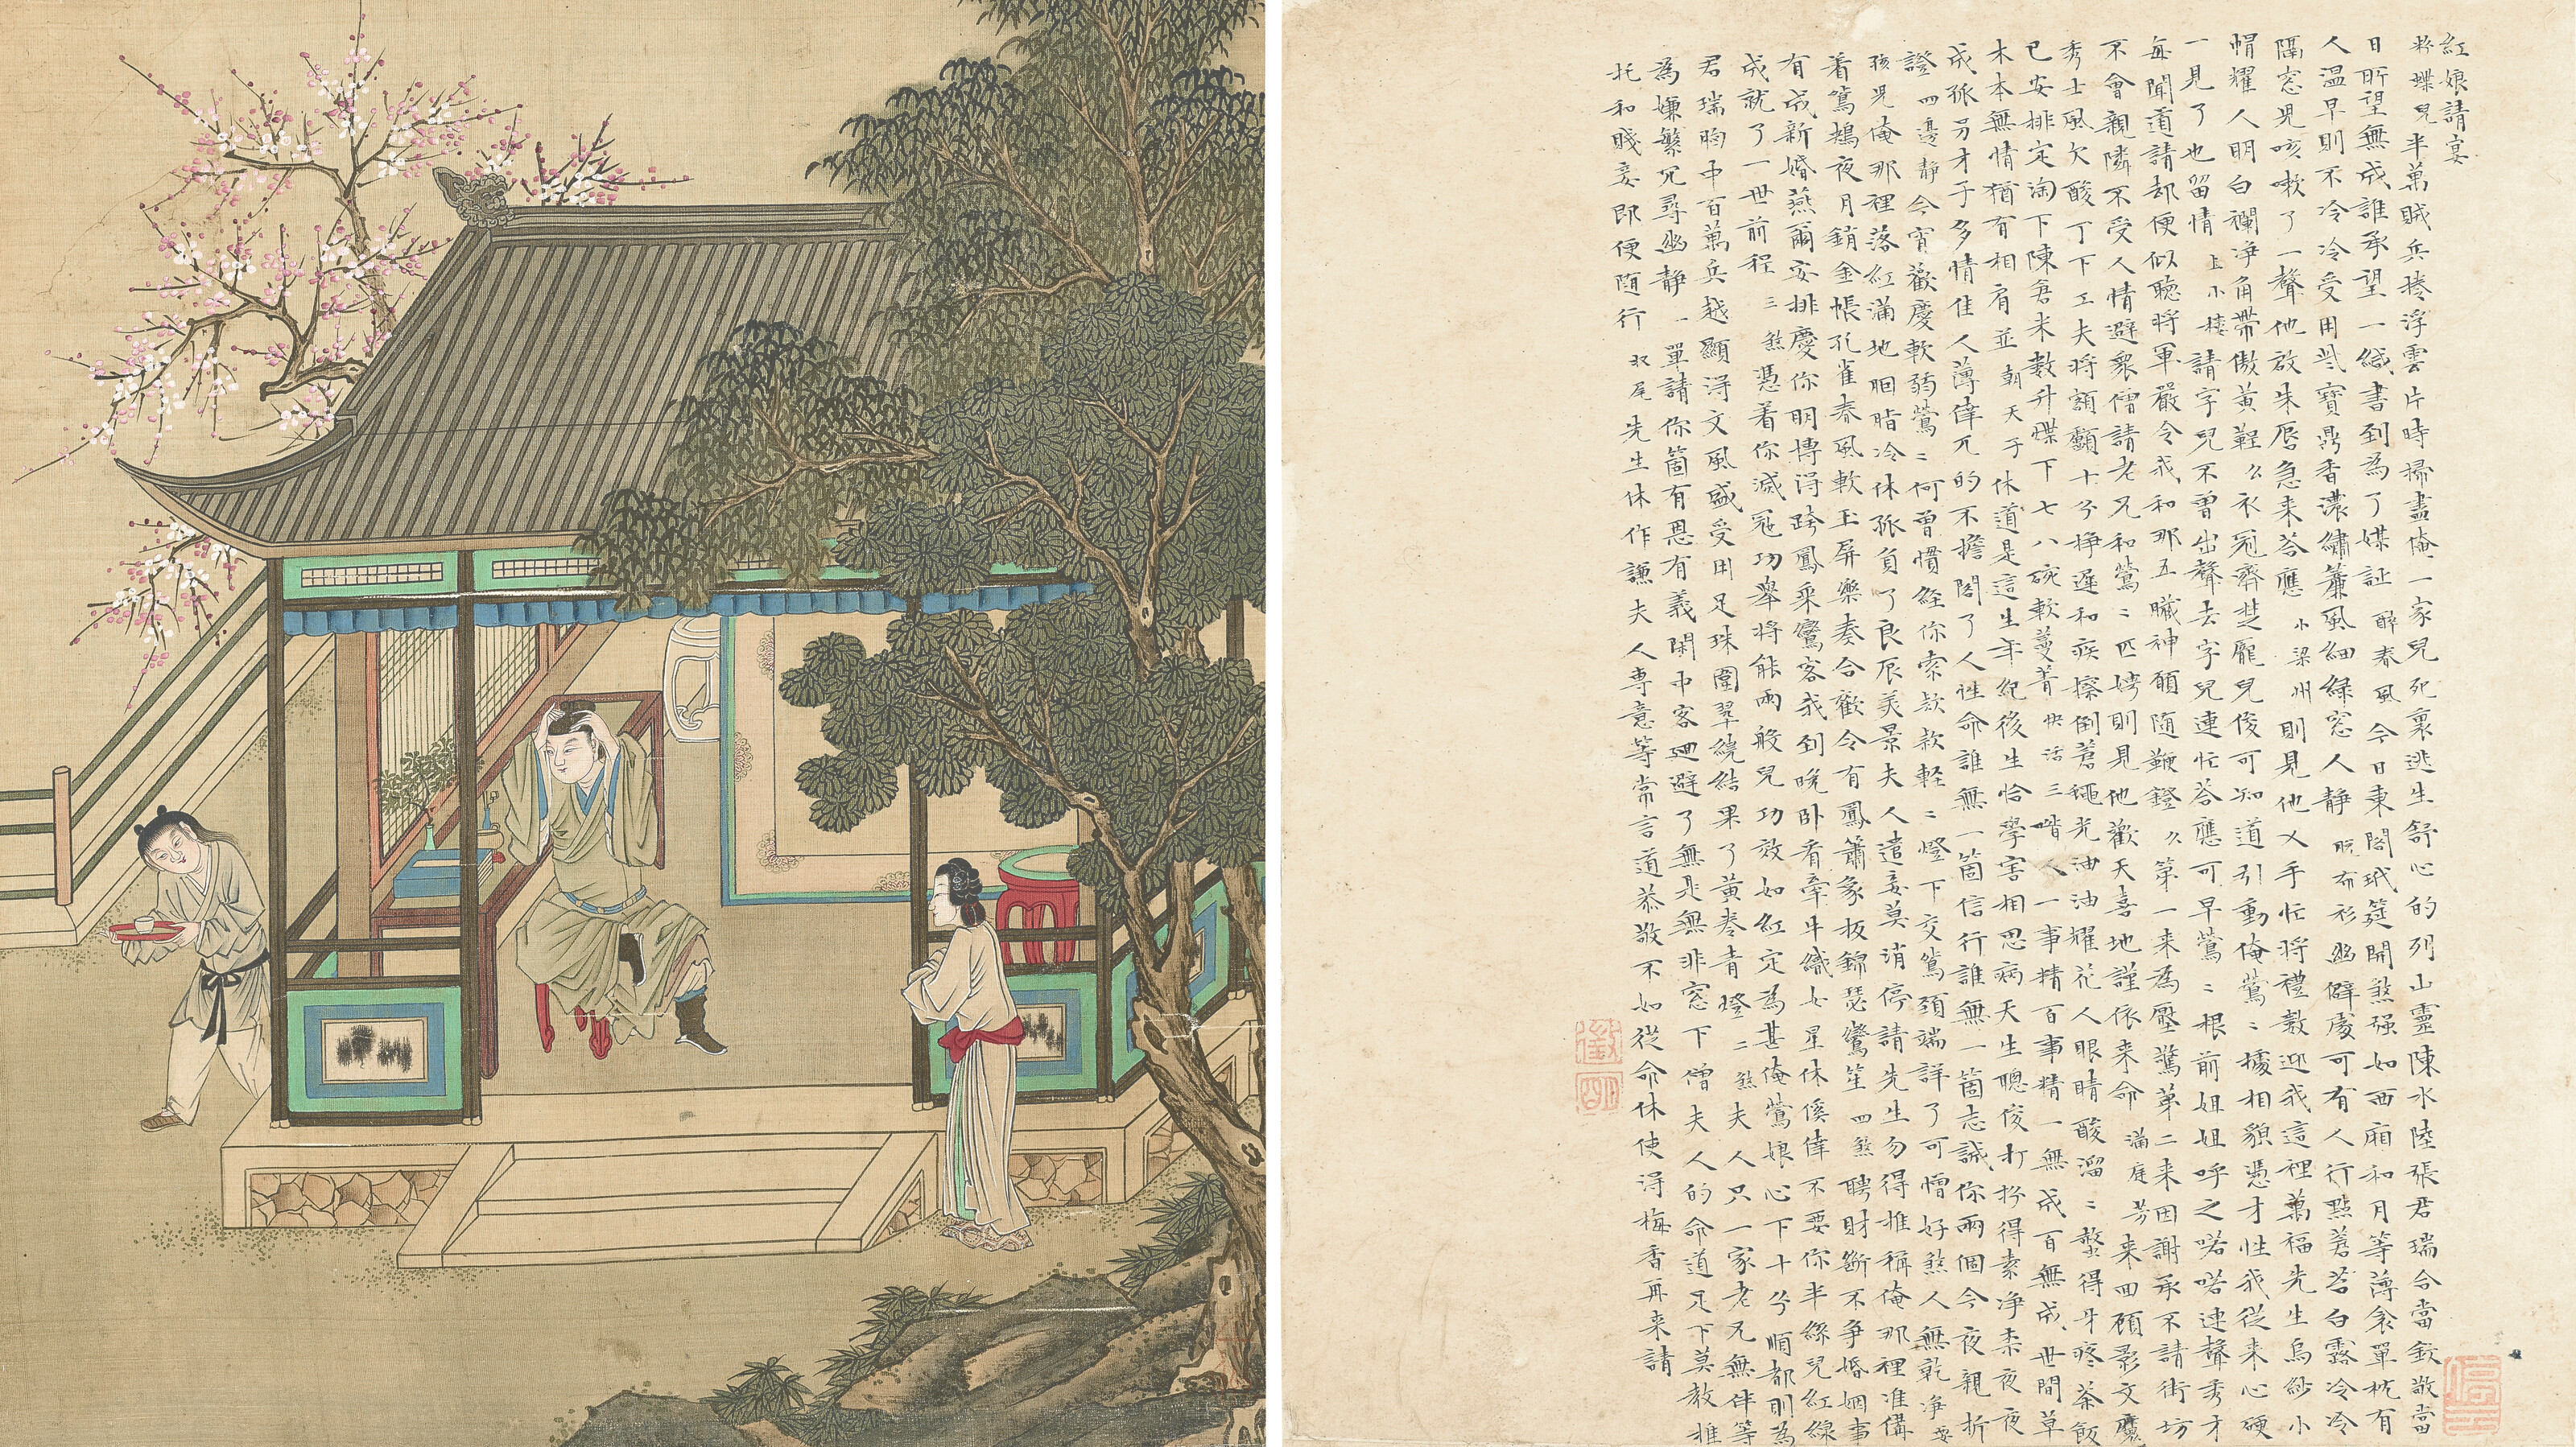 紅娘請宴
粉蝶兒半萬賊兵捲浮雲片時掃盡俺一家兒死裏逃生舒心的列山靈陳水陸張君瑞合當欽敬當
日所望無成誰承望一緘書到為了媒証 醉春風今日東閣玳筵開煞强如西廂和月等薄衾單枕有
人溫早則不冷冷受用些寶鼎香濃繡簾風細綠窓人静 脱布衫幽僻處可有人行點蒼苔白露冷冷
隔窓兒咳嗽了一聲他啟朱唇急来答應 小梁州則見他叉手忙將禮數迎我這裡萬福先生烏紗小
帽耀人明白襴净角帶傲黃鞓 么衣冠濟楚龐兒俊可知道引動俺鶯〻據相貌憑才性我從来心硬
一見了也留情 上小樓請字兒不曾出聲去字兒連忙答應可早鶯〻根前姐姐呼之喏喏連聲秀才
每聞道請却便似聽將軍嚴令我和那五臟神願随鞭鐙 么第一来為壓驚第二来因謝承不請街坊
不會親隣不受人情避衆僧請老兄和鶯〻匹娉則見他歡天喜地謹依来命 滿庭芳来回顧影文魔
秀士風欠酸丁下工夫將額顱十分掙遲和疾擦倒蒼蠅光油油耀花人眼睛酸溜〻螫得牙疼茶飯
已安排定淘下陳倉米數升煠下七八碗軟蔓菁 快活三喈人一事精百事精一無成百無成世間草
木本無情猶有相肩並 朝天子休道是這生年紀後生恰學害相思病天生聰俊打扮得素净柰夜夜
成孤另才子多情佳人薄倖兀的不擔閣了人性命誰無一箇信行誰無一箇志誠你兩個今夜親折
證 四邊静今宵歡慶軟弱鶯〻何曾慣經你索欵欵輕〻燈下交鴛頸端詳了可憎好煞人無乾净 耍
孩兒俺那裡落紅滿地胭脂冷休孤負了良辰美景夫人遣妾莫消停請先生勿得推稱俺那裡准備
着鴛鴦夜月銷金帳孔雀春風軟玉屏樂奏合歡令有鳳簫象板錦瑟鸞笙 四煞聘財斷不爭婚姻事
有成新婚燕爾安排慶你明博得跨鳳乘鸞客我到晚卧看牽牛織女星休傒倖不要你半絲兒紅線
成就了一世前程 三煞憑着你滅冦功舉將能兩般兒功效如紅定為甚俺鶯娘心下十分順都則為
君瑞胸中百萬兵越顯得文風盛受用足珠圍翠繞結果了黃卷青燈 二煞夫人只一家老兄無伴等
為嫌繁冗尋幽静 一單請你箇有恩有義閑中客廻避了無是無非窓下僧夫人的命道足下莫教推
托和賤妾即便随行 収尾先生休作謙夫人專意等常言道恭敬不如從命休使得梅香再来請
徵明
停雲